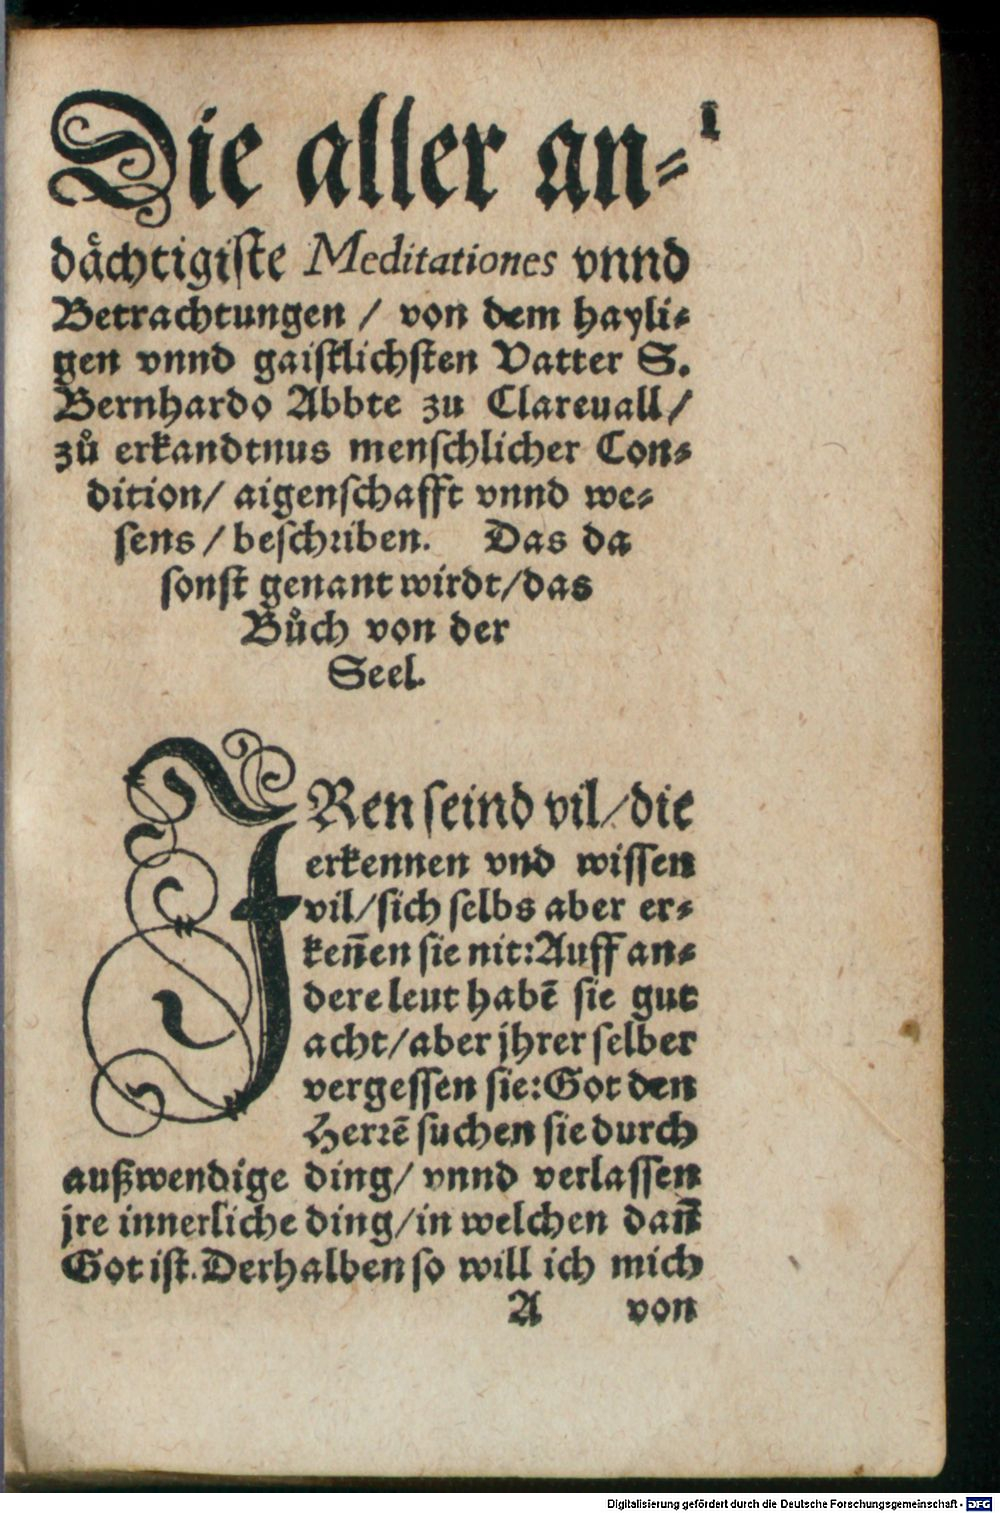 Die aller an- 1
dåchtigiste Meditationes vnnd
Betrachtungen / von dem hayli-
gen vnnd gaistlichsten Vatter S.
Bernhardo Abbte zu Clareuall /
zů erkandtnus menschlicher Con-
dition / aigenschafft vnnd we-
sens / beschriben. Das da
sonst genant wirdt / das
Bůch von der
Seel.
JRen seind vil / die
erkennen vnd wissen
vil / sich selbs aber er-
keñen sie nit: Auff an-
dere leut habē sie gut
acht / aber jhrer selber
vergessen sie: Got den
Herrē suchen sie durch
außwendige ding / vnnd verlassen
jre innerliche ding / in welchen dañ
Got ist. Derhalben so will ich mich
A von
Digitalisierung gefördert durch die Deutsche Forschungsgemeinschaft - DFG